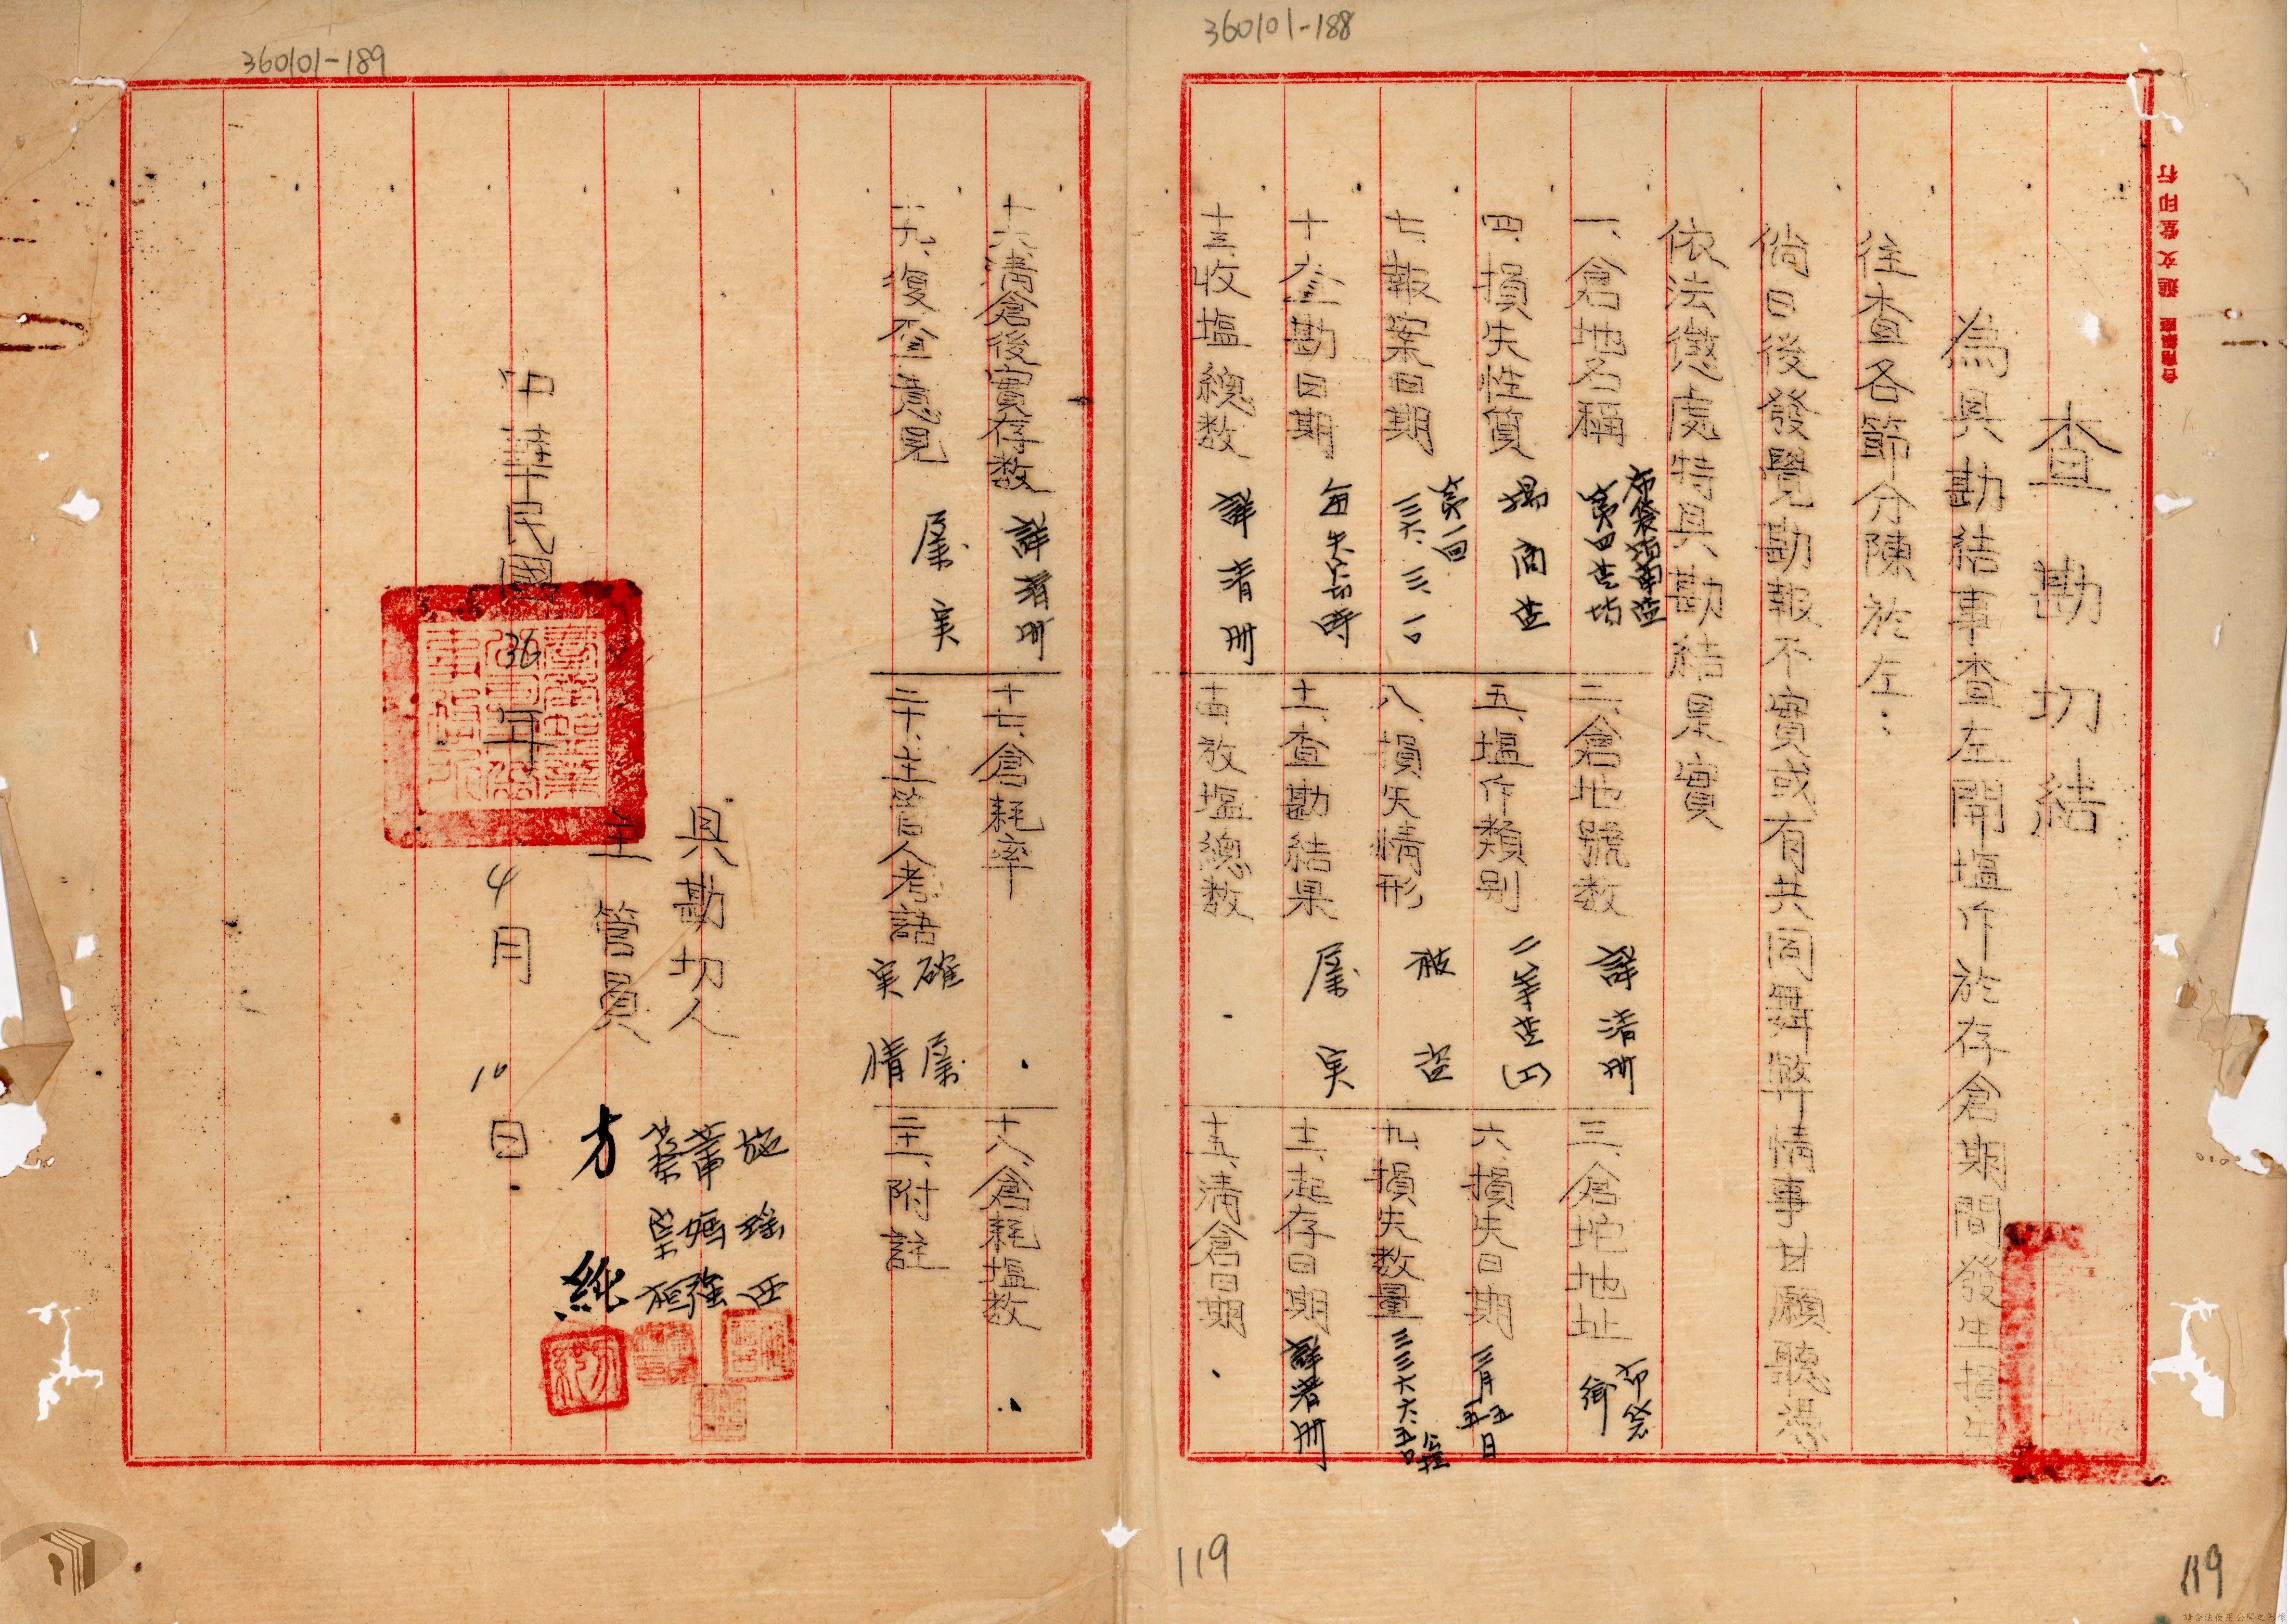 360101-188
查勘切結
為具勘結事查左開塩斤於存倉期間發生損失
往查各節分陳於左：
倘日後發覺勘報不實或有共同舞弊情事甘願聽憑
依法懲處特具勘結是實
一、倉地名稱
二、倉地號数 詳清册
三、倉坨地址 布袋
四、損失性質
五、塩斤類別
六、損失日期 三月
七、報案日期 第一回
八、損失情形 被盜
九、損失数量 三三六六.五〇 公担
十、查勘日期
十一、查勘結果 屬実
十二、起存日期 詳清册
十三、收塩總数 詳清册
十四、放塩總数
十五、清倉日期
119
119
360101-189
十六、清倉後實存数 詳清册
十七、倉耗率
十八、倉耗塩数
十九、復查意見 屬実
二十、主管人考語 確屬実情
二十一、附註
具勘切人
主管員 方純
中華民國36年4月10日
請合法使用公開之影像